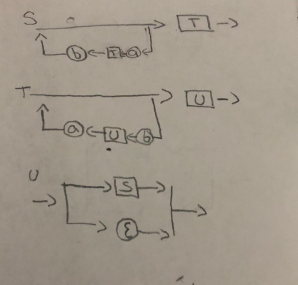 S T
b T a
T U
a U b
U
S
ξ